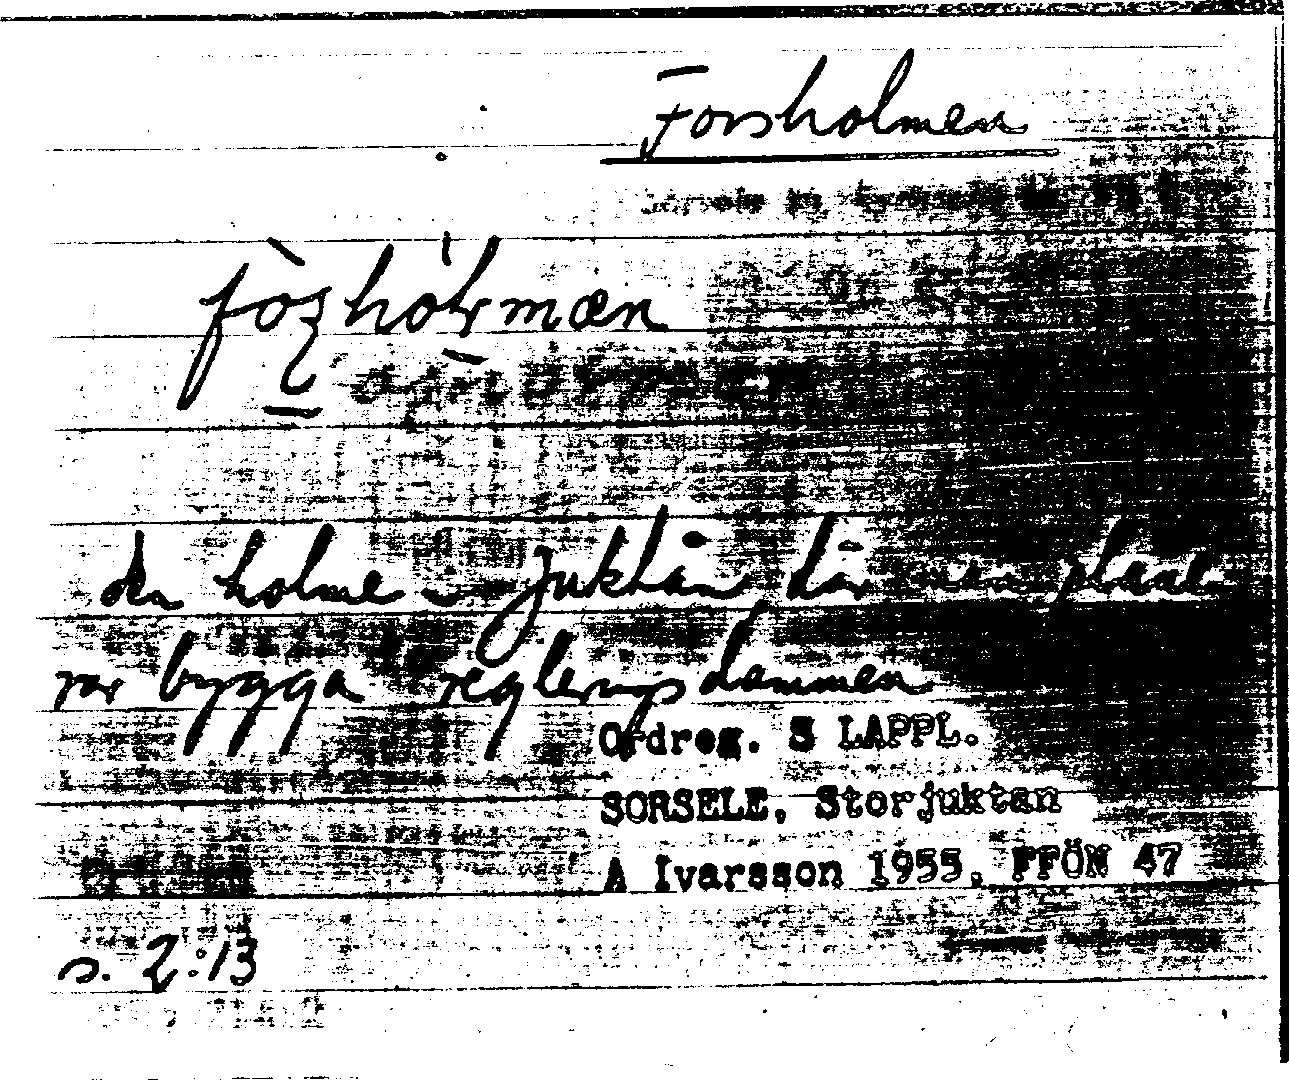 Forsholmen
den holme i Juktån där man plane-
rar bygga regleringsdammen
Ordreg. S LAPPL.
SORSELE, Storjuktan
A Ivarsson 1955, FFÖN 47
s. 2:13